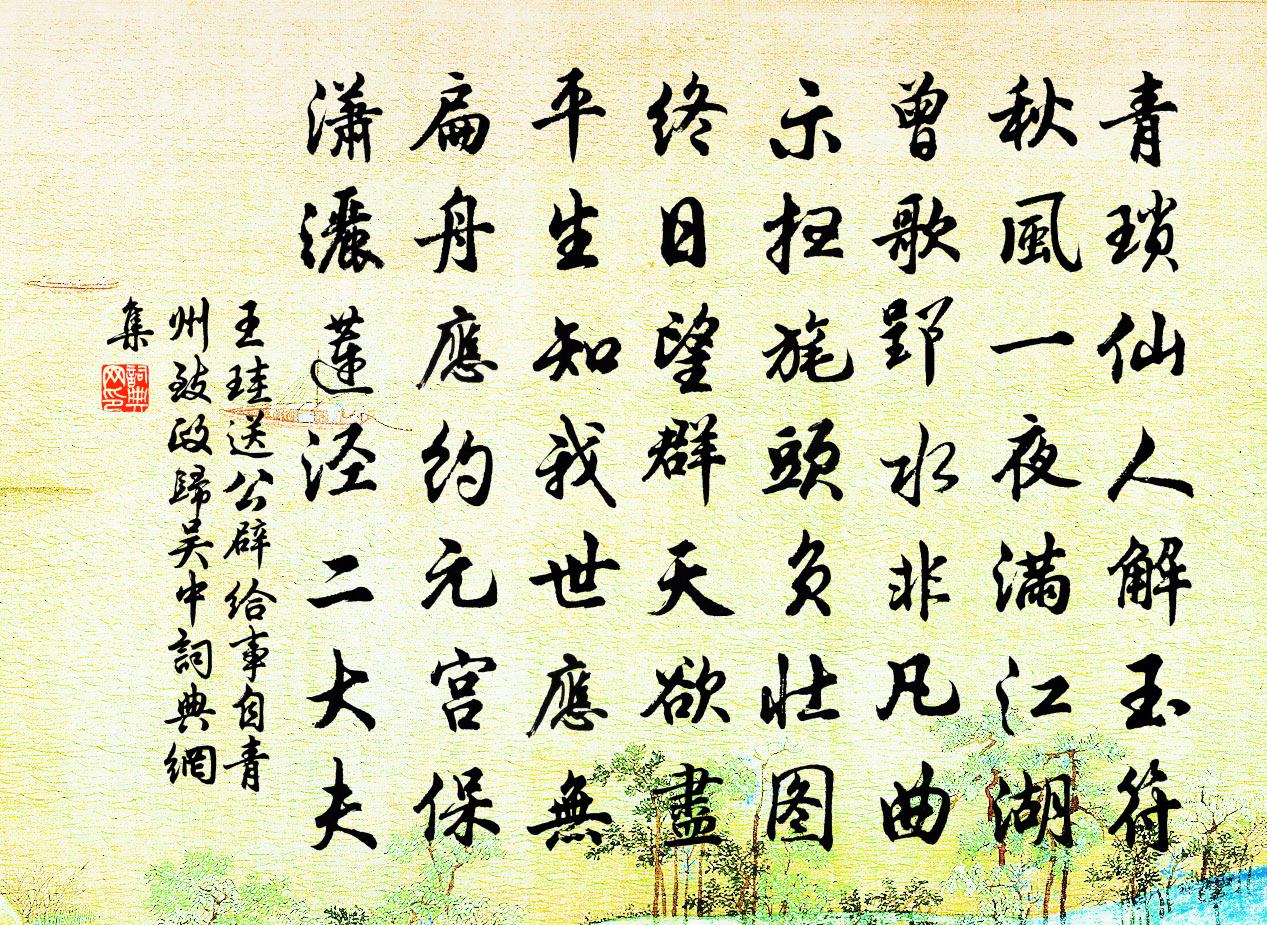 青瑣仙人解玉符
秋風一夜滿江湖
曾歌郢水非凡曲
示扭旄頭負壯图
終日望群天欲盡
平生知我世應無
扁舟應約元宫保
瀟灑蓮泾二大夫
王珪送公辟给事自青
州致政歸吴中詞典網
集
詞典网印